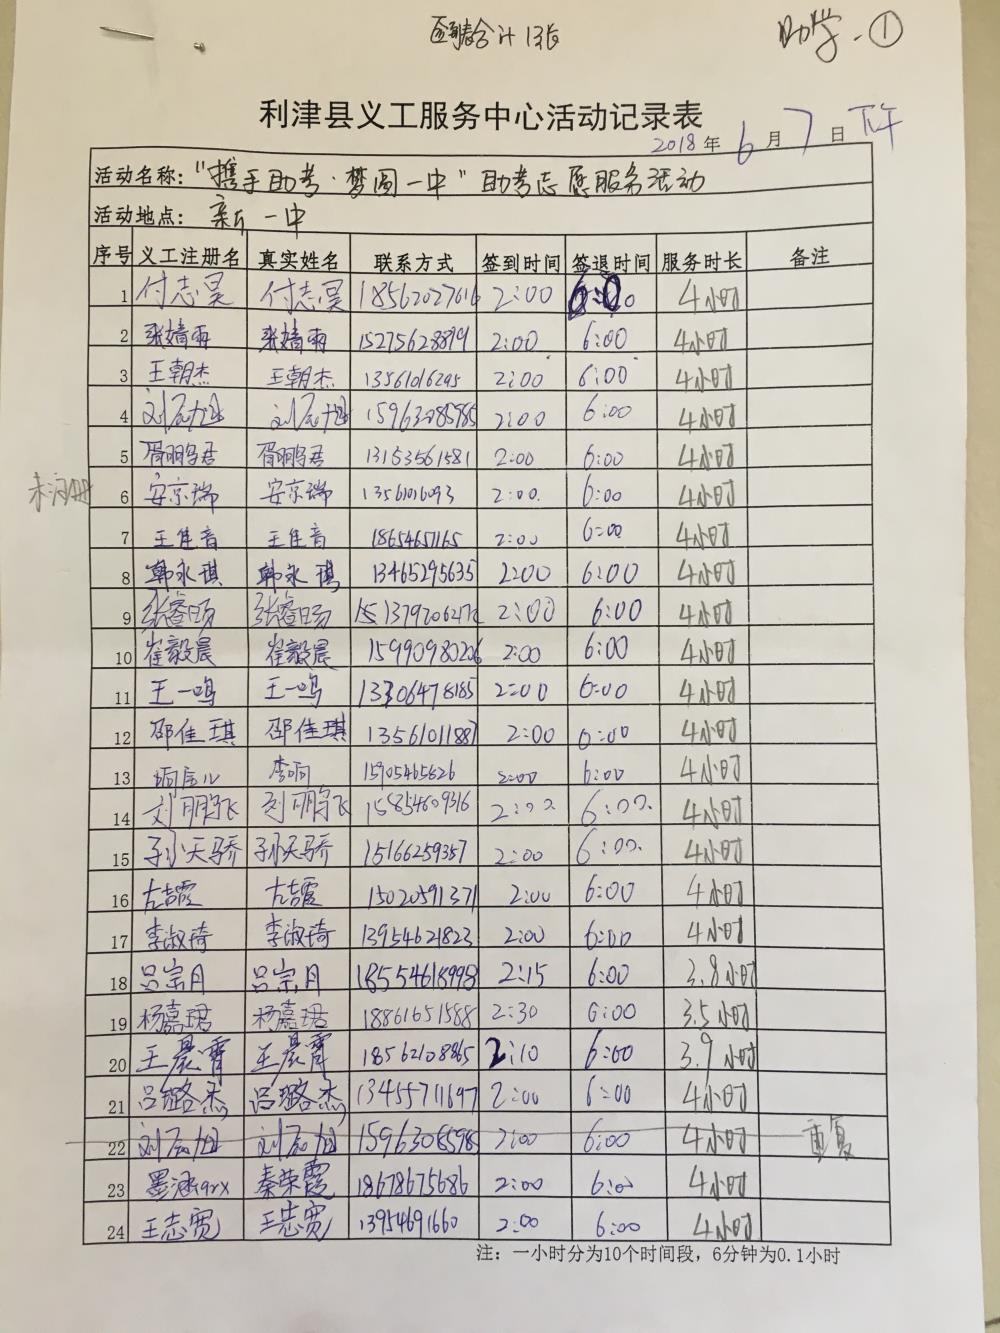 签到表合计13张
助学-①
利津县义工服务中心活动记录表
2018年6月7日下午
活动名称："携手助考·梦圆一中"助考志愿服务活动
活动地点：新一中
序号 义工注册名 真实姓名 联系方式 签到时间 签退时间 服务时长 备注
1 付志昊 付志昊 18562027616 2:00 6:00 4小时
2 张婧雨 张婧雨 15275628899 2:00 6:00 4小时
3 王朝杰 王朝杰 13561016295 2:00 6:00 4小时
4 刘辰旭 刘辰旭 15963085985 2:00 6:00 4小时
5 胥鹏君 胥鹏君 13153561581 2:00 6:00 4小时
未注册 6 安京瑞 安京瑞 13561016093 2:00 6:00 4小时
7 王佳音 王佳音 18654657165 2:00 6:00 4小时
8 韩永琪 韩永琪 13465295635 2:00 6:00 4小时
9 张睿旸 张睿旸 2:00 6:00 4小时
10 崔毅晨 崔毅晨 15990980206 2:00 6:00 4小时
11 王一鸣 王一鸣 13306478185 2:00 6:00 4小时
12 邵佳琪 邵佳琪 13561011887 2:00 6:00 4小时
13 李响 15905465626 2:00 6:00 4小时
14 刘鹏飞 刘鹏飞 15854609316 2:00 6:00 4小时
15 孙天骄 孙天骄 15166259357 2:00 6:00 4小时
16 左喆霞 左喆霞 15020591371 2:00 6:00 4小时
17 李淑琦 李淑琦 13954621823 2:00 6:00 4小时
18 吕宗月 吕宗月 18554618998 2:15 6:00 3.8小时
19 杨嘉珺 杨嘉珺 18861651588 2:30 6:00 3.5小时
20 王晨霄 王晨霄 18562108865 2:10 6:00 3.9小时
21 吕璐杰 吕璐杰 13455711697 2:00 6:00 4小时
22 刘辰旭 刘辰旭 15963085985 2:00 6:00 4小时 重复
23 墨涵qrx 秦荣霞 18678675686 2:00 6:00 4小时
24 王志宽 王志宽 13954691660 2:00 6:00 4小时
注：一小时分为10个时间段，6分钟为0.1小时